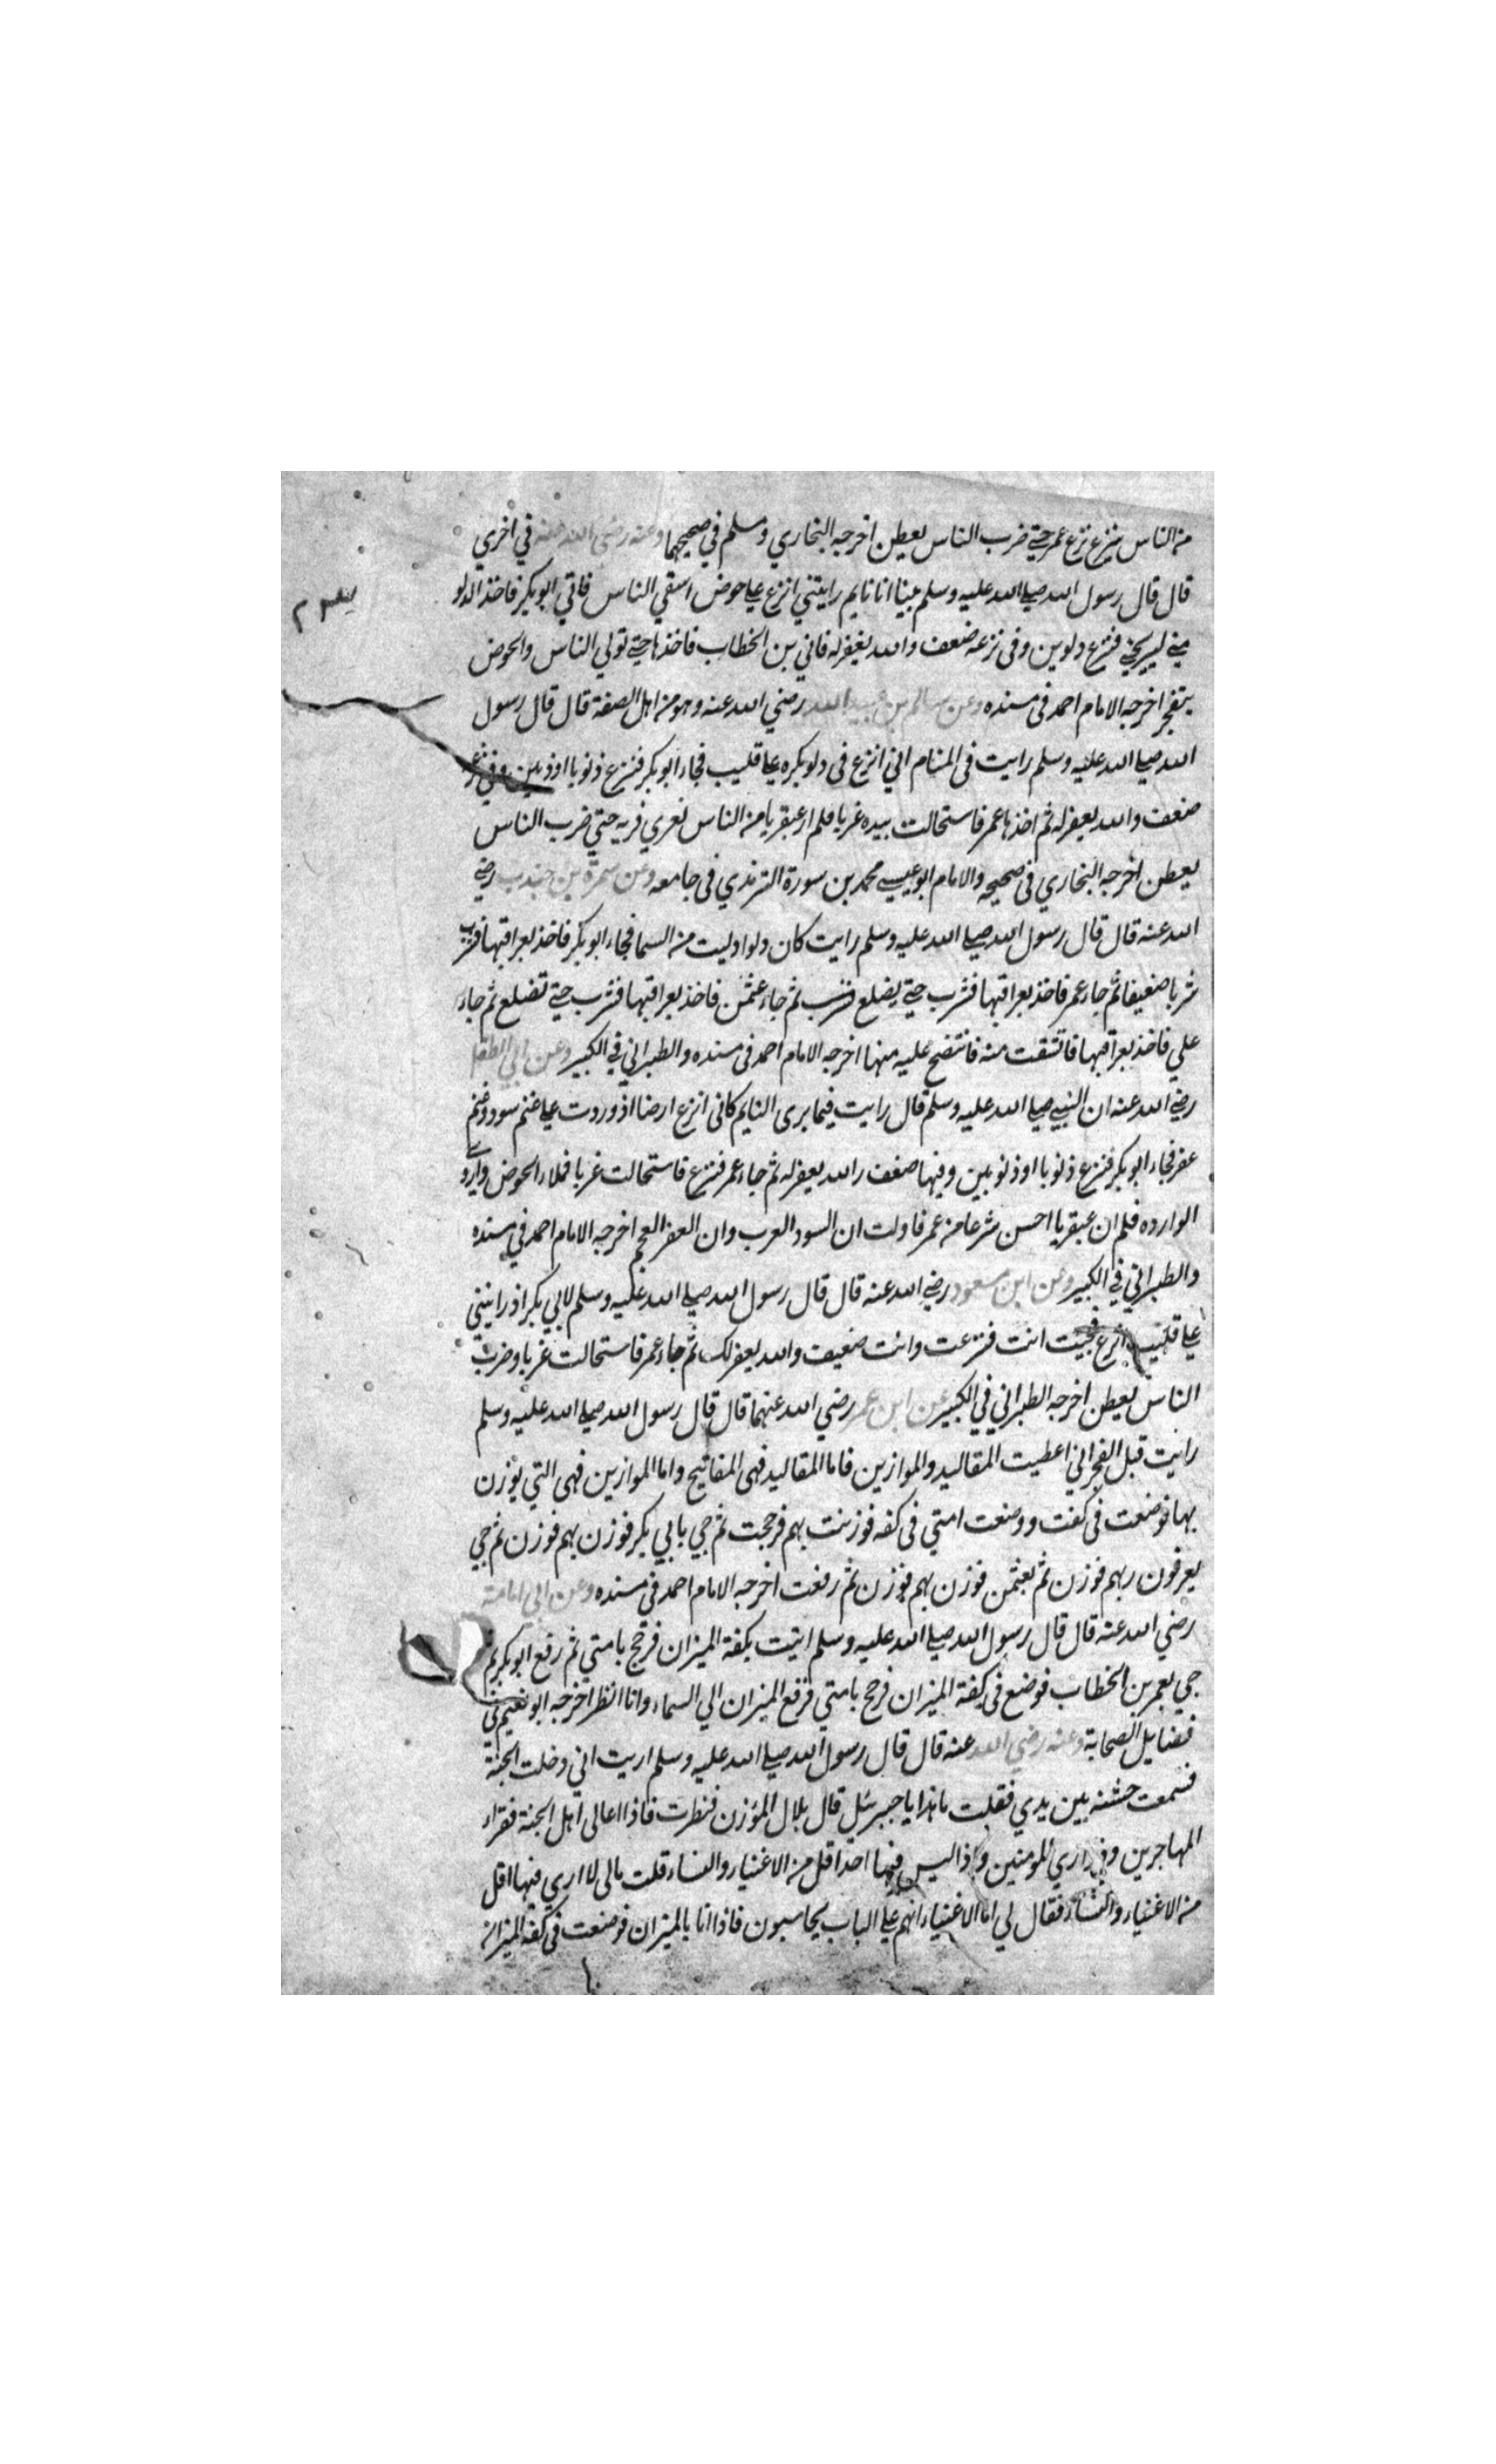 من الناس ينزع نزع عمر حتى ضرب الناس بعطن اخرجه البخاري ومسلم في صحيحهما وعنه رضى الله عنه في اخري
قال قال رسول الله صلى الله عليه وسلم بينا انا نايم رايتني انزع على حوض اسقي الناس فاتي ابو بكر فاخذ الدلو
مني ليريحني فنزع دلوين وفى نزعه ضعف والله يغفر له فاتي بن الخطاب فاخذها حتى تولي الناس والحوض
يتفجر اخرجه الامام احمد فى مسنده وعن سالم بن عبيد الله رضي الله عنه وهو من اهل الصفة قال قال رسول
الله صلى الله عليه وسلم رايت فى المنام اني انزع فى دلو بكره على قليب فجاء ابو بكر فنزع ذنوبا او ذنوبين وفي نزعه
ضعف والله يغفر له ثم اخذها عمر فاستحالت بيده غربا فلم ار عبقريا من الناس يفري فريه حتي ضرب الناس
بعطن اخرجه البخاري فى صحيحه والامام ابو عيسى محمد بن سورة الترمذي فى جامعه وعن سمرة بن جندب رضى
الله عنه قال قال رسول الله صلى الله عليه وسلم رايت كان دلوا دليت من السما فجاء ابو بكر فاخذ بعراقيها فشرب
شربا ضعيفا ثم جاء عمر فاخذ بعراقيها فشرب حتى يضلع فشرب ثم جاء عثمن فاخذ بعراقيها فشرب حتى تضلع ثم جاء
علي فاخذ بعراقيها فانتشقت منه فانتضح عليه منها اخرجه الامام احمد فى مسنده والطبراني في الكبير وعن ابي الطفل
رضى الله عنه ان النبي صلى الله عليه وسلم قال رايت فيما يرى النايم كانى انزع ارضا اذ وردت على غنم سود وغنم
عفر فجاء ابو بكر فنزع ذنوبا او ذنوبين وفيها ضعف والله يغفر له ثم جاء عمر فنزع فاستحالت غربا فملاء الحوض واروى
الوارده فلم ار عبقريا احسن شرعا من عمر فاولت ان السود العرب وان العفر العجم اخرجه الامام احمد في مسنده
والطبراني في الكبير وعن ابن مسعود رضى الله عنه قال قال رسول الله صلى الله عليه وسلم لابي بكر اذ رايتني
على قليب انزع فجيت انت فنزعت وانت ضعيف والله يغفر لك ثم جاء عمر فاستحالت غربا وضرب
الناس بعطن اخرجه الطبراني في الكبير عن ابن عمر رضي الله عنهما قال قال رسول الله صلى الله عليه وسلم
رايت قبل الفجر اني اعطيت المقاليد والموازين فاما المقاليد فهى المفاتيح واما الموازين فهى التي يوزن
بها فوضعت فى كفت ووضعت امتي فى كفه فوزنت بهم فرجحت ثم جي بابي بكر فوزن بهم فوزن ثم جي
بعرفون ربهم فوزن ثم بعثمن فوزن بهم فوزن ثم رفعت اخرجه الامام احمد فى مسنده وعن ابي امامة
رضي الله عنه قال قال رسول الله صلى الله عليه وسلم اتيت بكفة الميزان فرجح بامتي ثم رفع ابو بكر ثم
جي بعمر بن الخطاب فوضع فى كفة الميزان فرجح بامتي فرفع الميزان الي السماء وانا انظر اخرجه ابو نعيم في
فضايل الصحابة وعنه رضي الله عنه قال قال رسول الله صلى الله عليه وسلم اريت اني دخلت الجنة
فسمعت خشفه بين يدي فقلت ما هذا يا جبرئل قال بلال المؤذن فنظرت فاذا اعالى اهل الجنة فقراء
المهاجرين وذراري المومنين واذا ليس فيها احد اقل من الاغنياء والنساء قلت مالى لا اري فيها اقل
من الاغنياء والنساء فقال لي اما الاغنياء انهم على الباب يحاسبون فاذا انا بالميزان فوضعت فى كفه الميزان